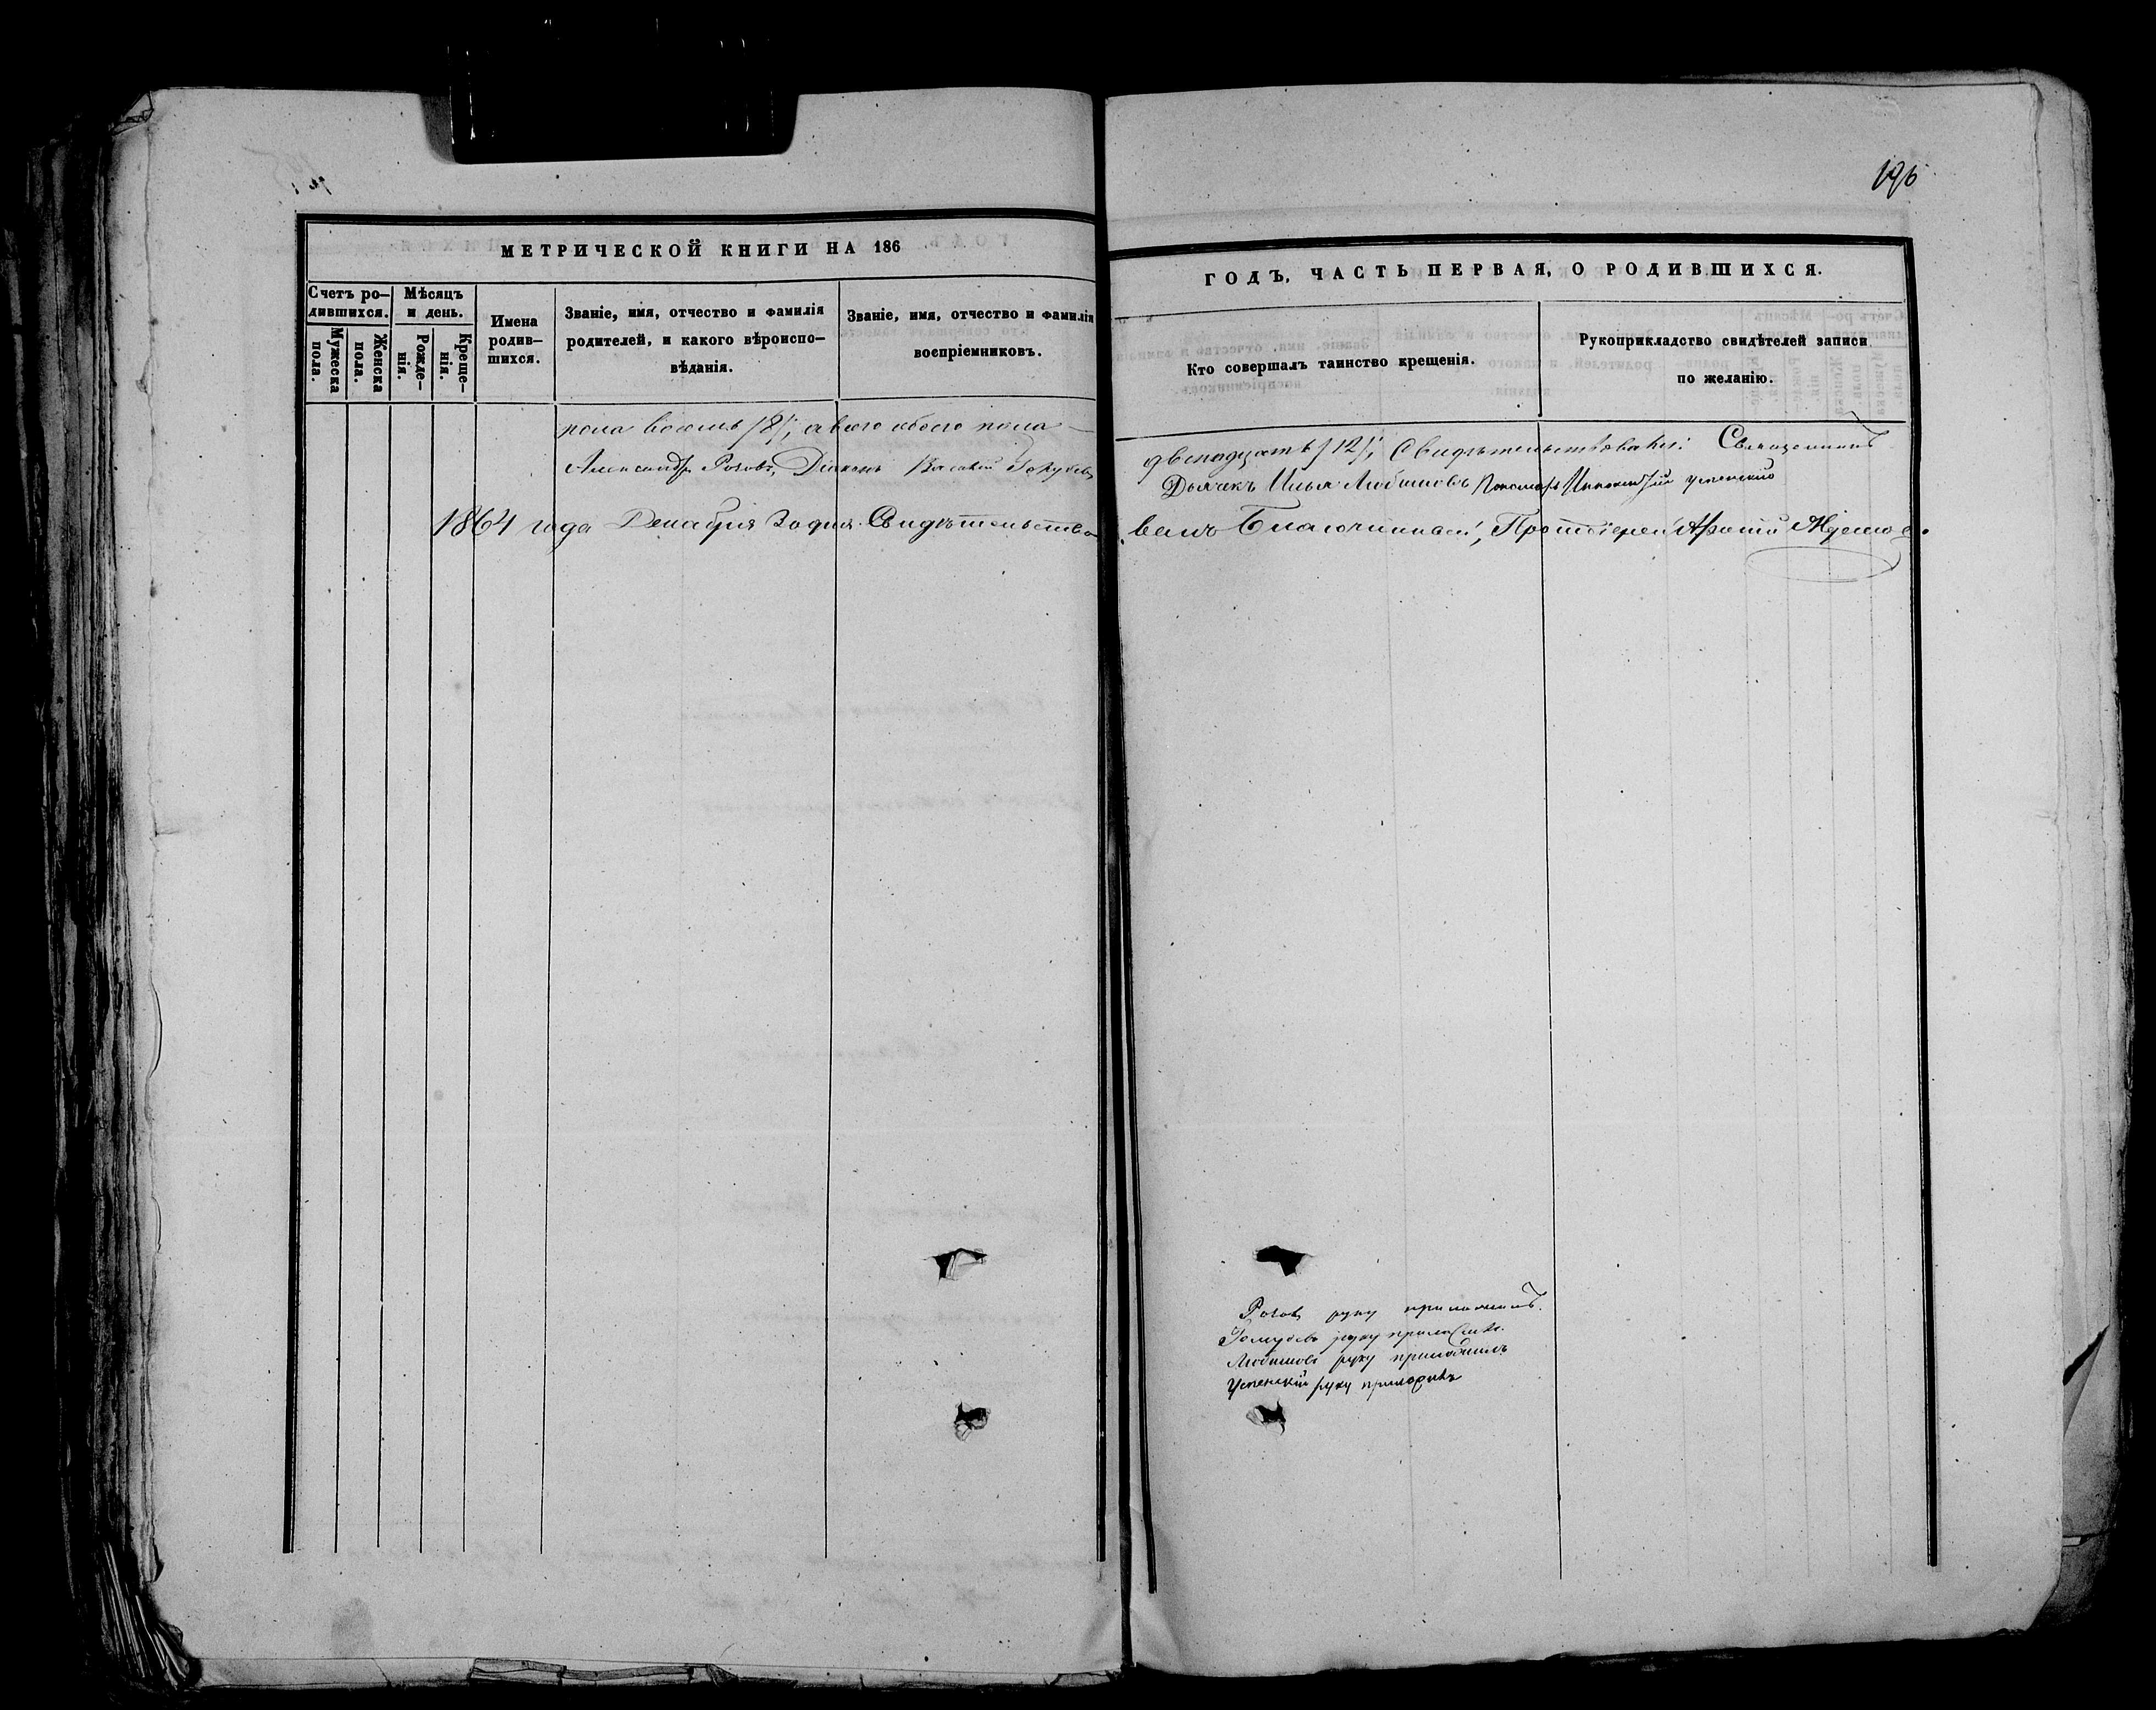 196
МЕТРИЧЕСКОЙ КНИГИ НА 186
ГОДЪ, ЧАСТЬ ПЕРВАЯ, О РОДИВШИХСЯ.
Счетъ ро-
дившихся.
Мужеска
пола.
Женска
пола.
Мѣсяцъ
и день.
Рожде-
нія.
Креще-
нія.
Имена
родив-
шихся.
Званіе, имя, отчество и фамилія
родителей, и какого вѣроиспо-
вѣданія.
Званіе, имя, отчество и фамилія
воспріемниковъ.
Кто совершалъ таинство крещенія.
Рукоприкладство свидѣтелей записи
по желанію.
пола восемь /8/, а всего обоего пола
двенадцать /12/; Свидѣтельствовали: Священникъ
Александръ Розовъ, Діаконъ Василій Голубевъ
Дьячекъ Илья Любимовъ Пономарь Иннокентій Успенскій
1864 года Декабря 30 дня. Свидѣтельство
валъ Благочинный, Протоіерей
Розовъ руку приложилъ.
Голубевъ руку приложилъ.
Любимовъ руку приложилъ
Успенскій руку приложилъ